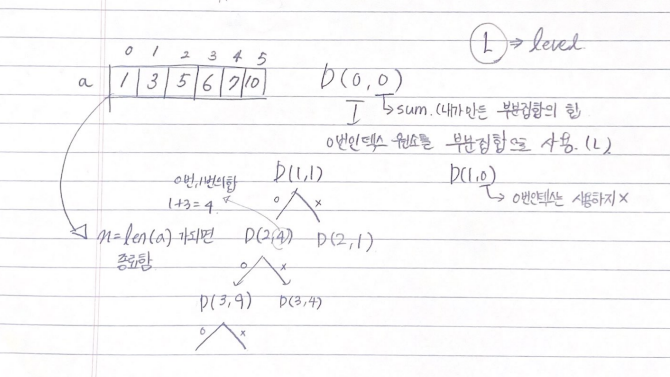 L ⇒ level.
0 1 2 3 4 5
a 1 3 5 6 7 10
D(0,0)
↳ sum. (내가 만든 부분집합의 합
0번 인덱스 원소를 부분집합으로 사용. (L)
D(1,1) D(1,0)
0번, 1번의 합 o x ↳ 0번인덱스는 사용하지 x
1+3=4
n=len(a) 가되면 D(2,4) D(2,1)
종료함 o x
D(3,9) D(3,4)
o x